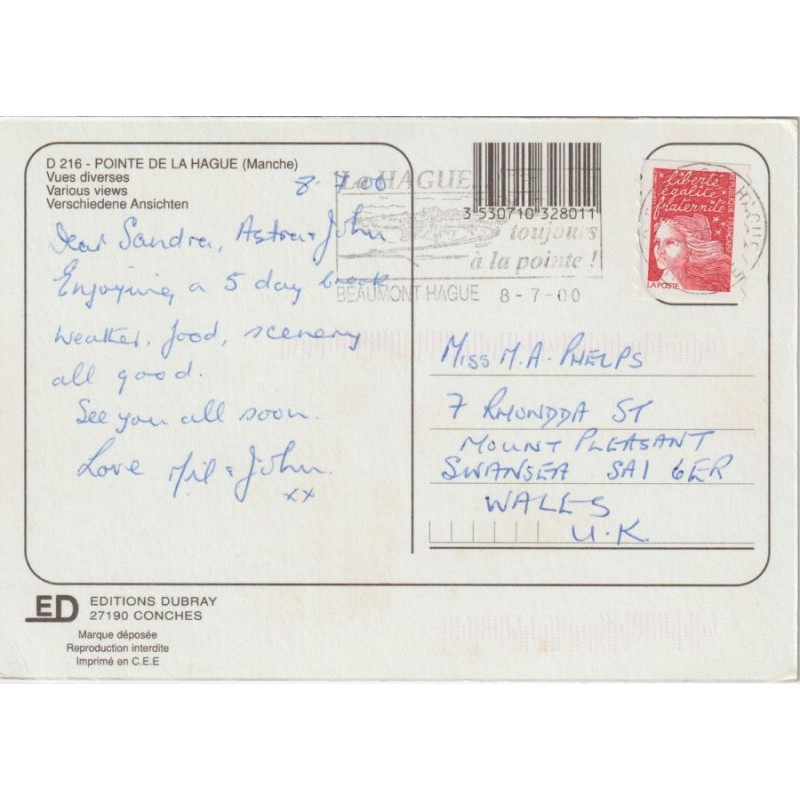 D 216 - POINTE DE LA HAGUE (Manche)
Vues diverses
Various views
Verschiedene Ansichten
8·7·00
Dear Sandra, Astra & John
Enjoying a 5 day break
Weather, food, scenery
all good.
See you all soon.
Love Mil & John.
xx
La HAGUE
toujours
à la pointe !
BEAUMONT HAGUE 8-7-00
3 530710 328011
liberté
égalité
fraternité
RÉPUBLIQUE FRANÇAISE
LA POSTE
HAGUE
MISS M.A. PHELPS
7 RHONDDA ST
MOUNT PLEASANT
SWANSEA SA1 6ER
WALES
U.K.
ED
EDITIONS DUBRAY
27190 CONCHES
Marque déposée
Reproduction interdite
Imprimé en C.E.E